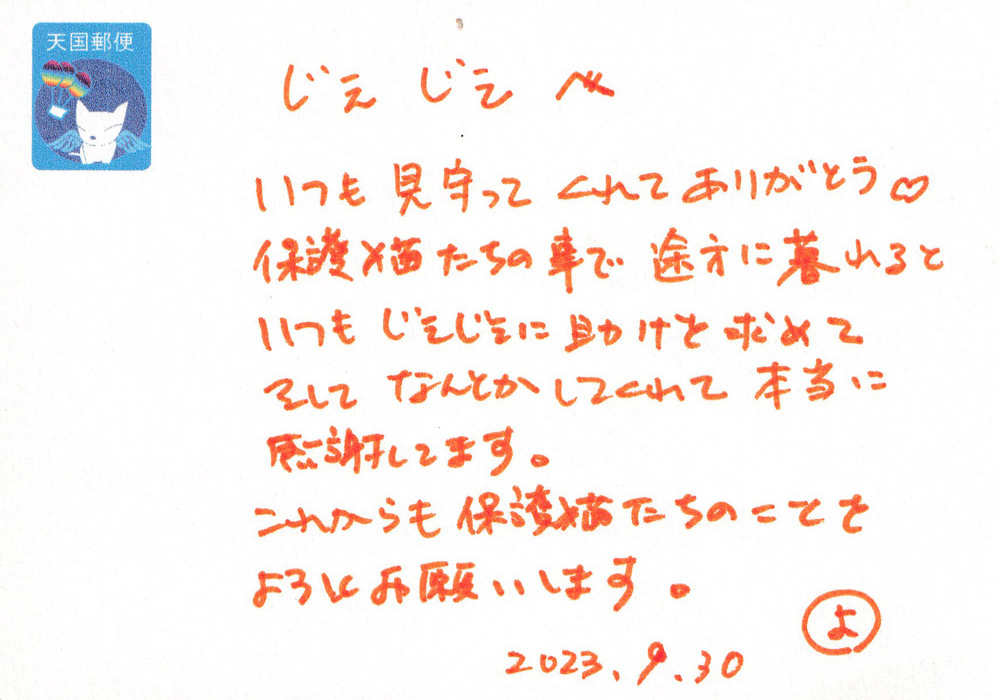 天国郵便
じぇじぇへ
いつも見守ってくれてありがとう♡
保護猫たちの事で途方に暮れると
いつもじぇじぇに助けを求めて
そしてなんとかしてくれて本当に
感謝してます。
これからも保護猫たちのことを
よろしくお願いします。
よ
2023.9.30